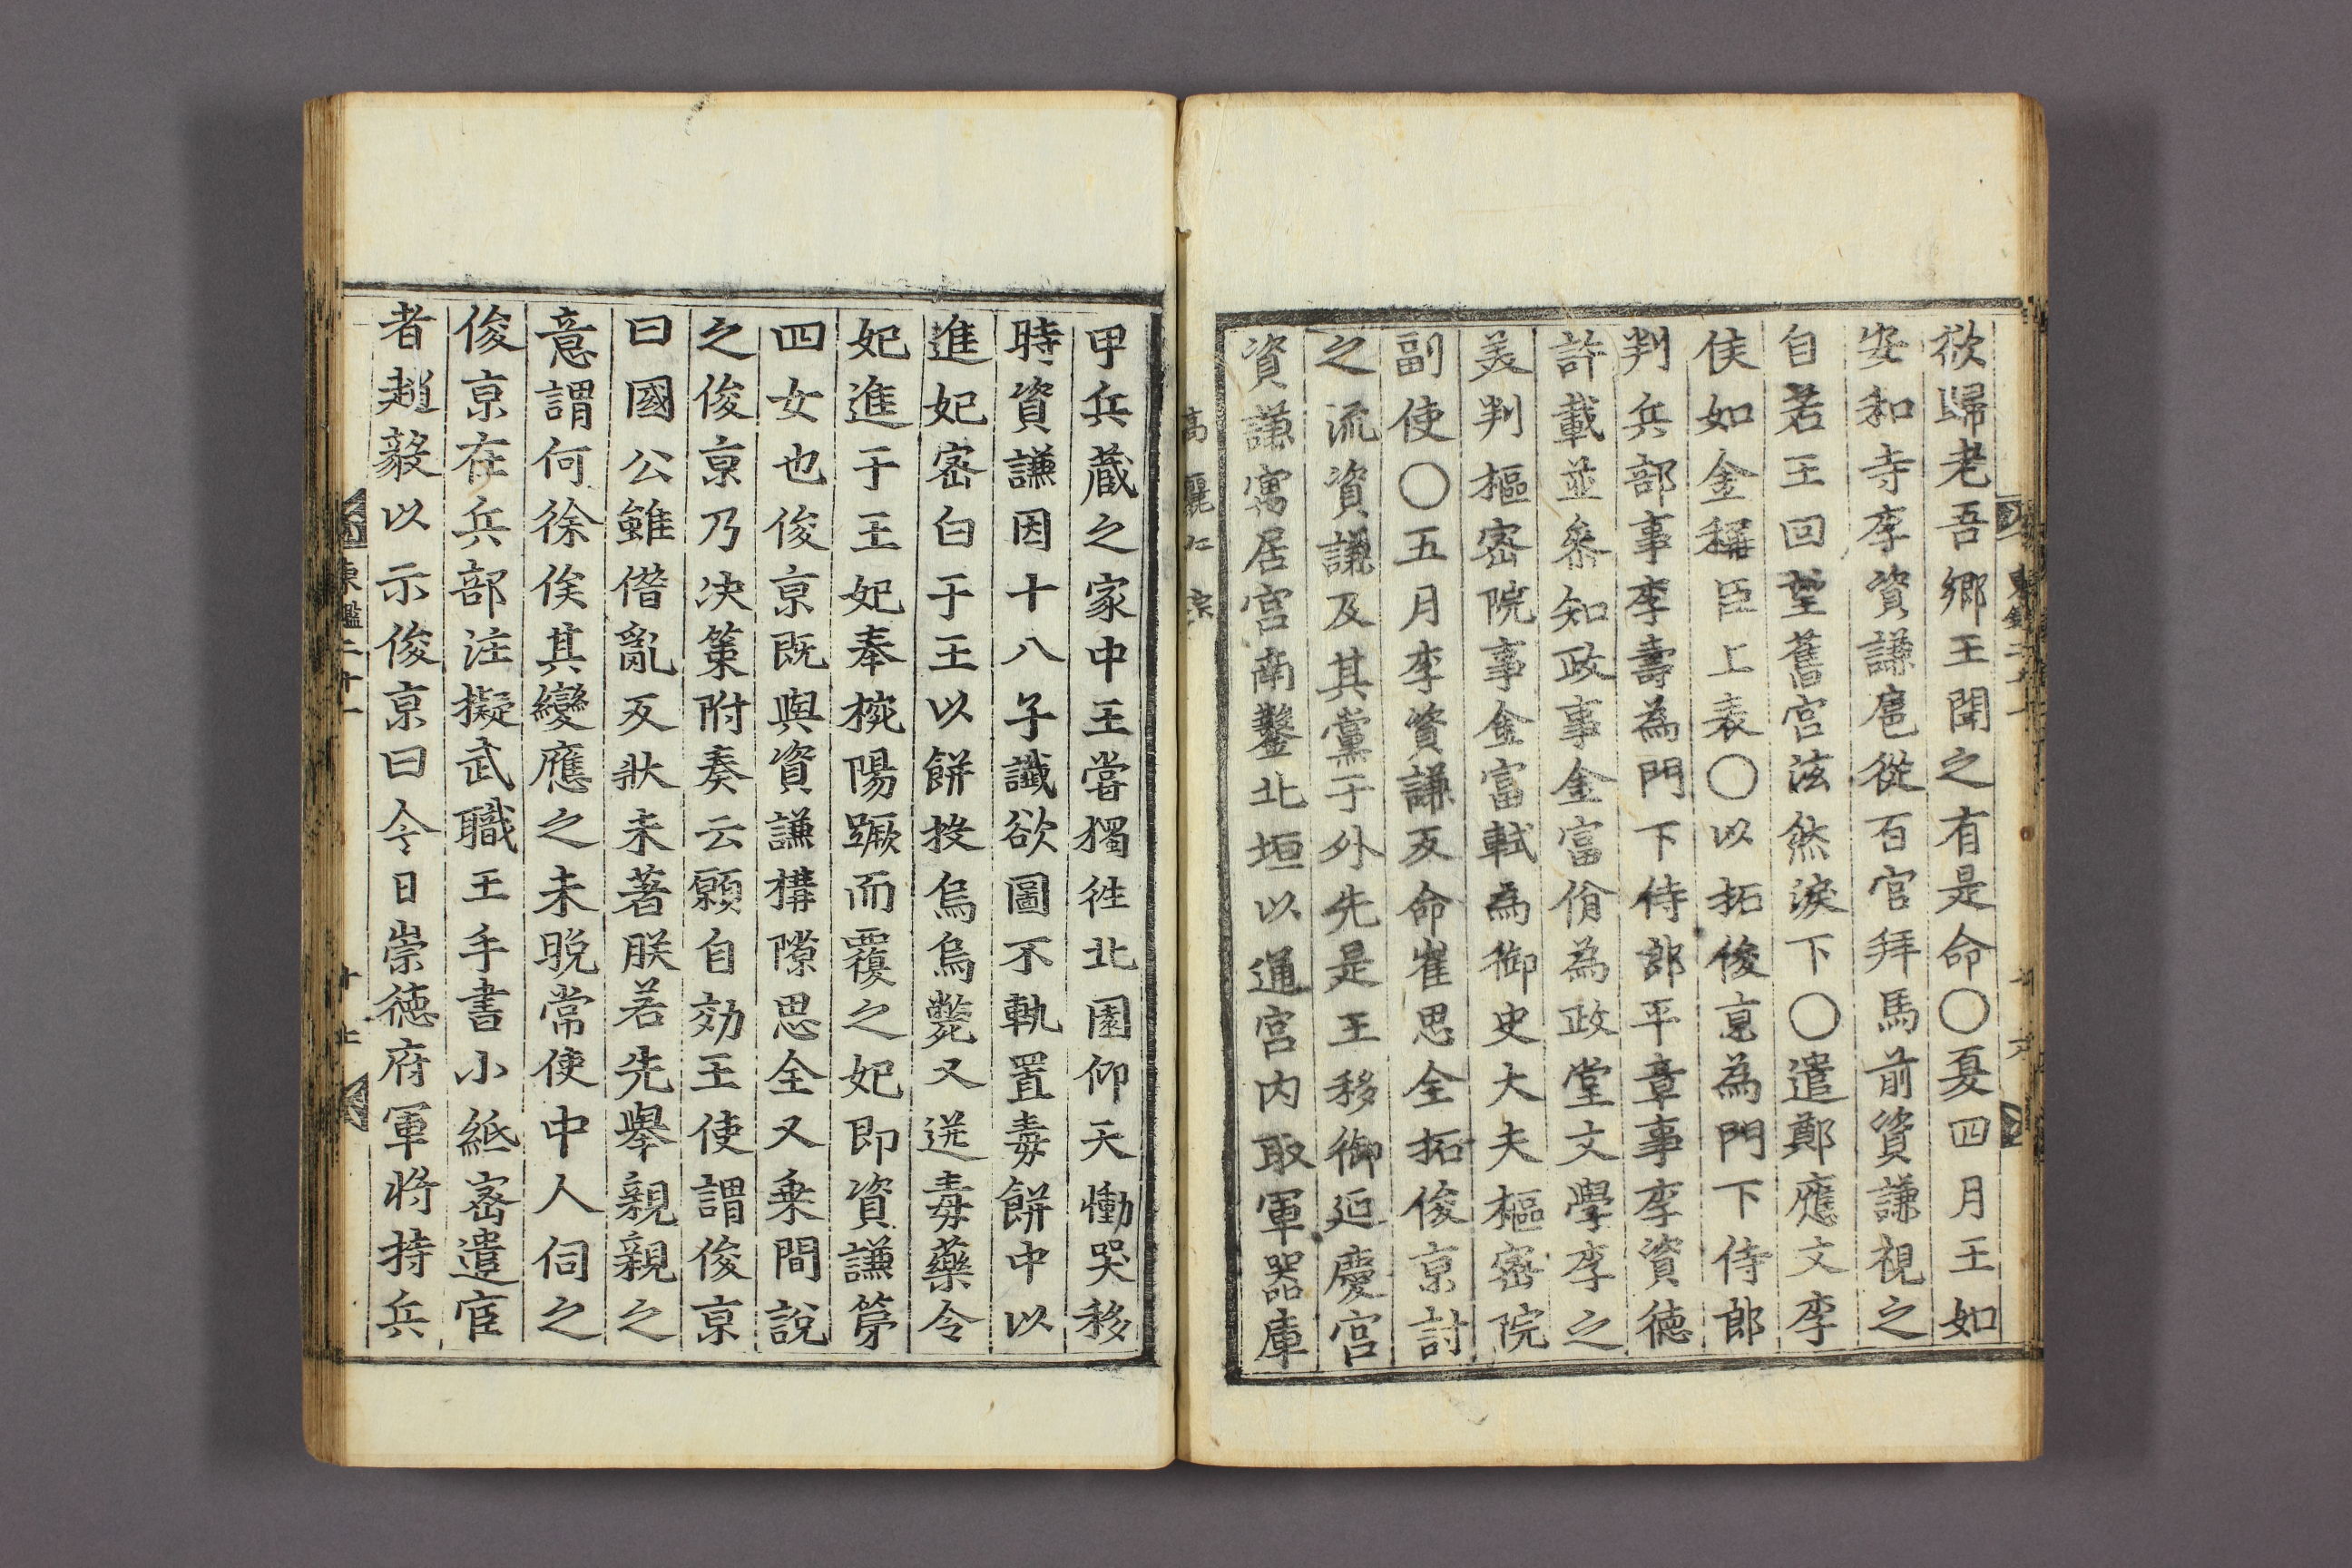 欲歸老吾鄉王聞之有是命〇夏四月王如
安和寺李資謙扈從百官拜馬前資謙視之
自若王回望舊宮泫然淚下〇遣鄭應文李
侯如金稱臣上表〇以拓俊京為門下侍郎
判兵部事李壽為門下侍郎平章事李資德
許載並叅知政事金富佾為政堂文學李之
美判樞密院事金富軾為御史大夫樞密院
副使〇五月李資謙反命崔思全拓俊京討
之流資謙及其黨于外先是王移御延慶宮
資謙寓居宮南鑿北垣以通宮内取軍器庫
高麗仁宗
甲兵藏之家中王嘗獨徃北園仰天慟哭移
時資謙因十八子讖欲圖不軌置毒餠中以
進妃密白于王以餠投烏烏斃又送毒藥令
妃進于王妃奉椀陽蹶而覆之妃即資謙第
四女也俊京既與資謙搆隙思全又乗間說
之俊京乃决策附奏云願自効王使謂俊京
曰國公雖僭亂反狀未著朕若先舉親親之
意謂何徐俟其變應之未晩常使中人伺之
俊京在兵部注擬武職王手書小紙密遣宦
者趙毅以示俊京曰今日崇德府軍将持兵
東鑑二十一
十七